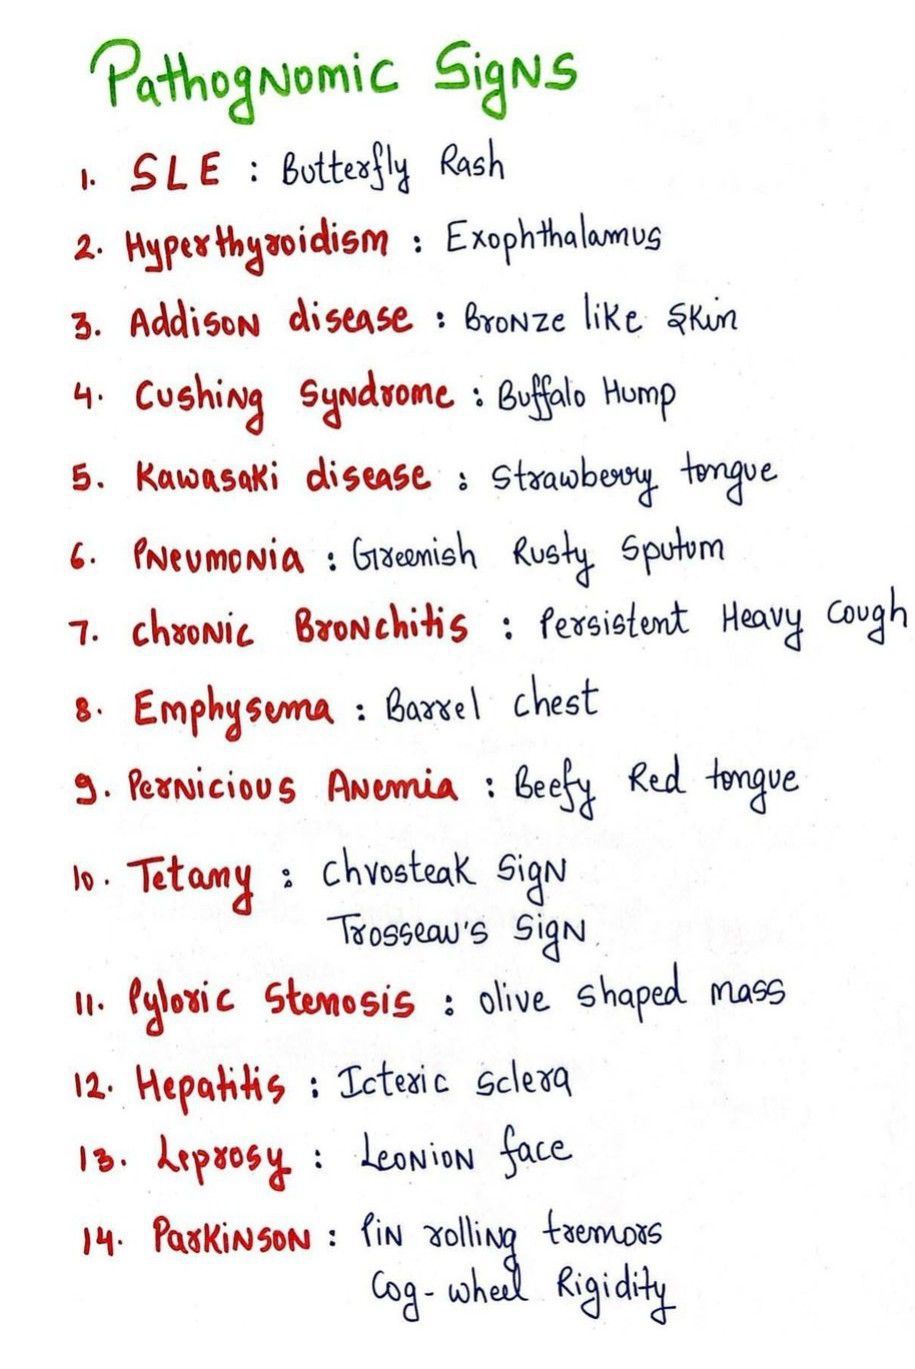 Pathognomic Signs
1. SLE : Butterfly Rash
2. Hyperthyroidism : Exophthalamus
3. Addison disease : Bronze like Skin
4. Cushing Syndrome : Buffalo Hump
5. Kawasaki disease : Strawberry tongue
6. Pneumonia : Greenish Rusty Sputum
7. Chronic Bronchitis : Persistent Heavy Cough
8. Emphysema : Barrel chest
9. Pernicious Anemia : Beefy Red tongue
10. Tetany : Chvosteak Sign
Trosseau's Sign.
11. Pyloric Stenosis : olive shaped mass
12. Hepatitis : Icteric sclera
13. Leprosy : Leonion face
14. Parkinson : Pin rolling tremors
Cog-wheel Rigidity